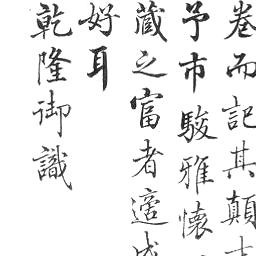 卷而記其顛
予市駿雅懷
藏之富者適
好耳
乾隆御識